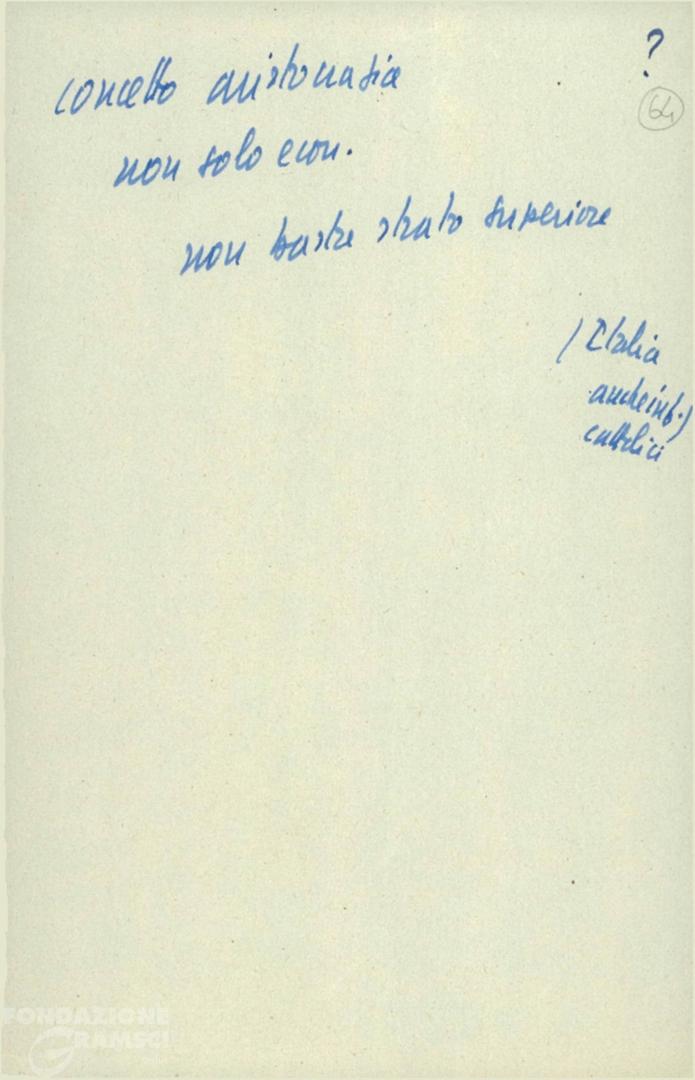 ?
64
concetto aristocrazia
non solo econ.
non basta strato superiore
(Italia
anche int.)
cattolici
FONDAZIONE
GRAMSCI